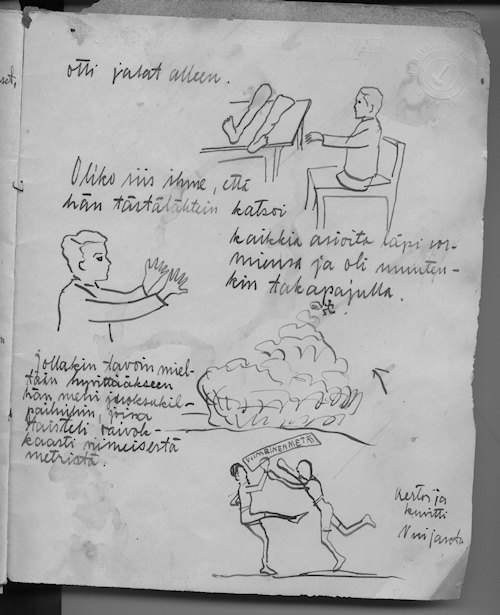 otti jalat alleen.
Oliko siis ihme, että
hän tästälähtein katsoi
kaikkia asioita läpi sor-
miensa ja oli muuten-
kin takapajulla.
Jollakin tavoin miel-
tään hyvittääkseen
hän meni juoksukil-
pailuihin, joissa
taisteli raivok-
kaasti viimeisestä
metristä.
VIIMEINEN METRI
Kertoi ja
kuvitti